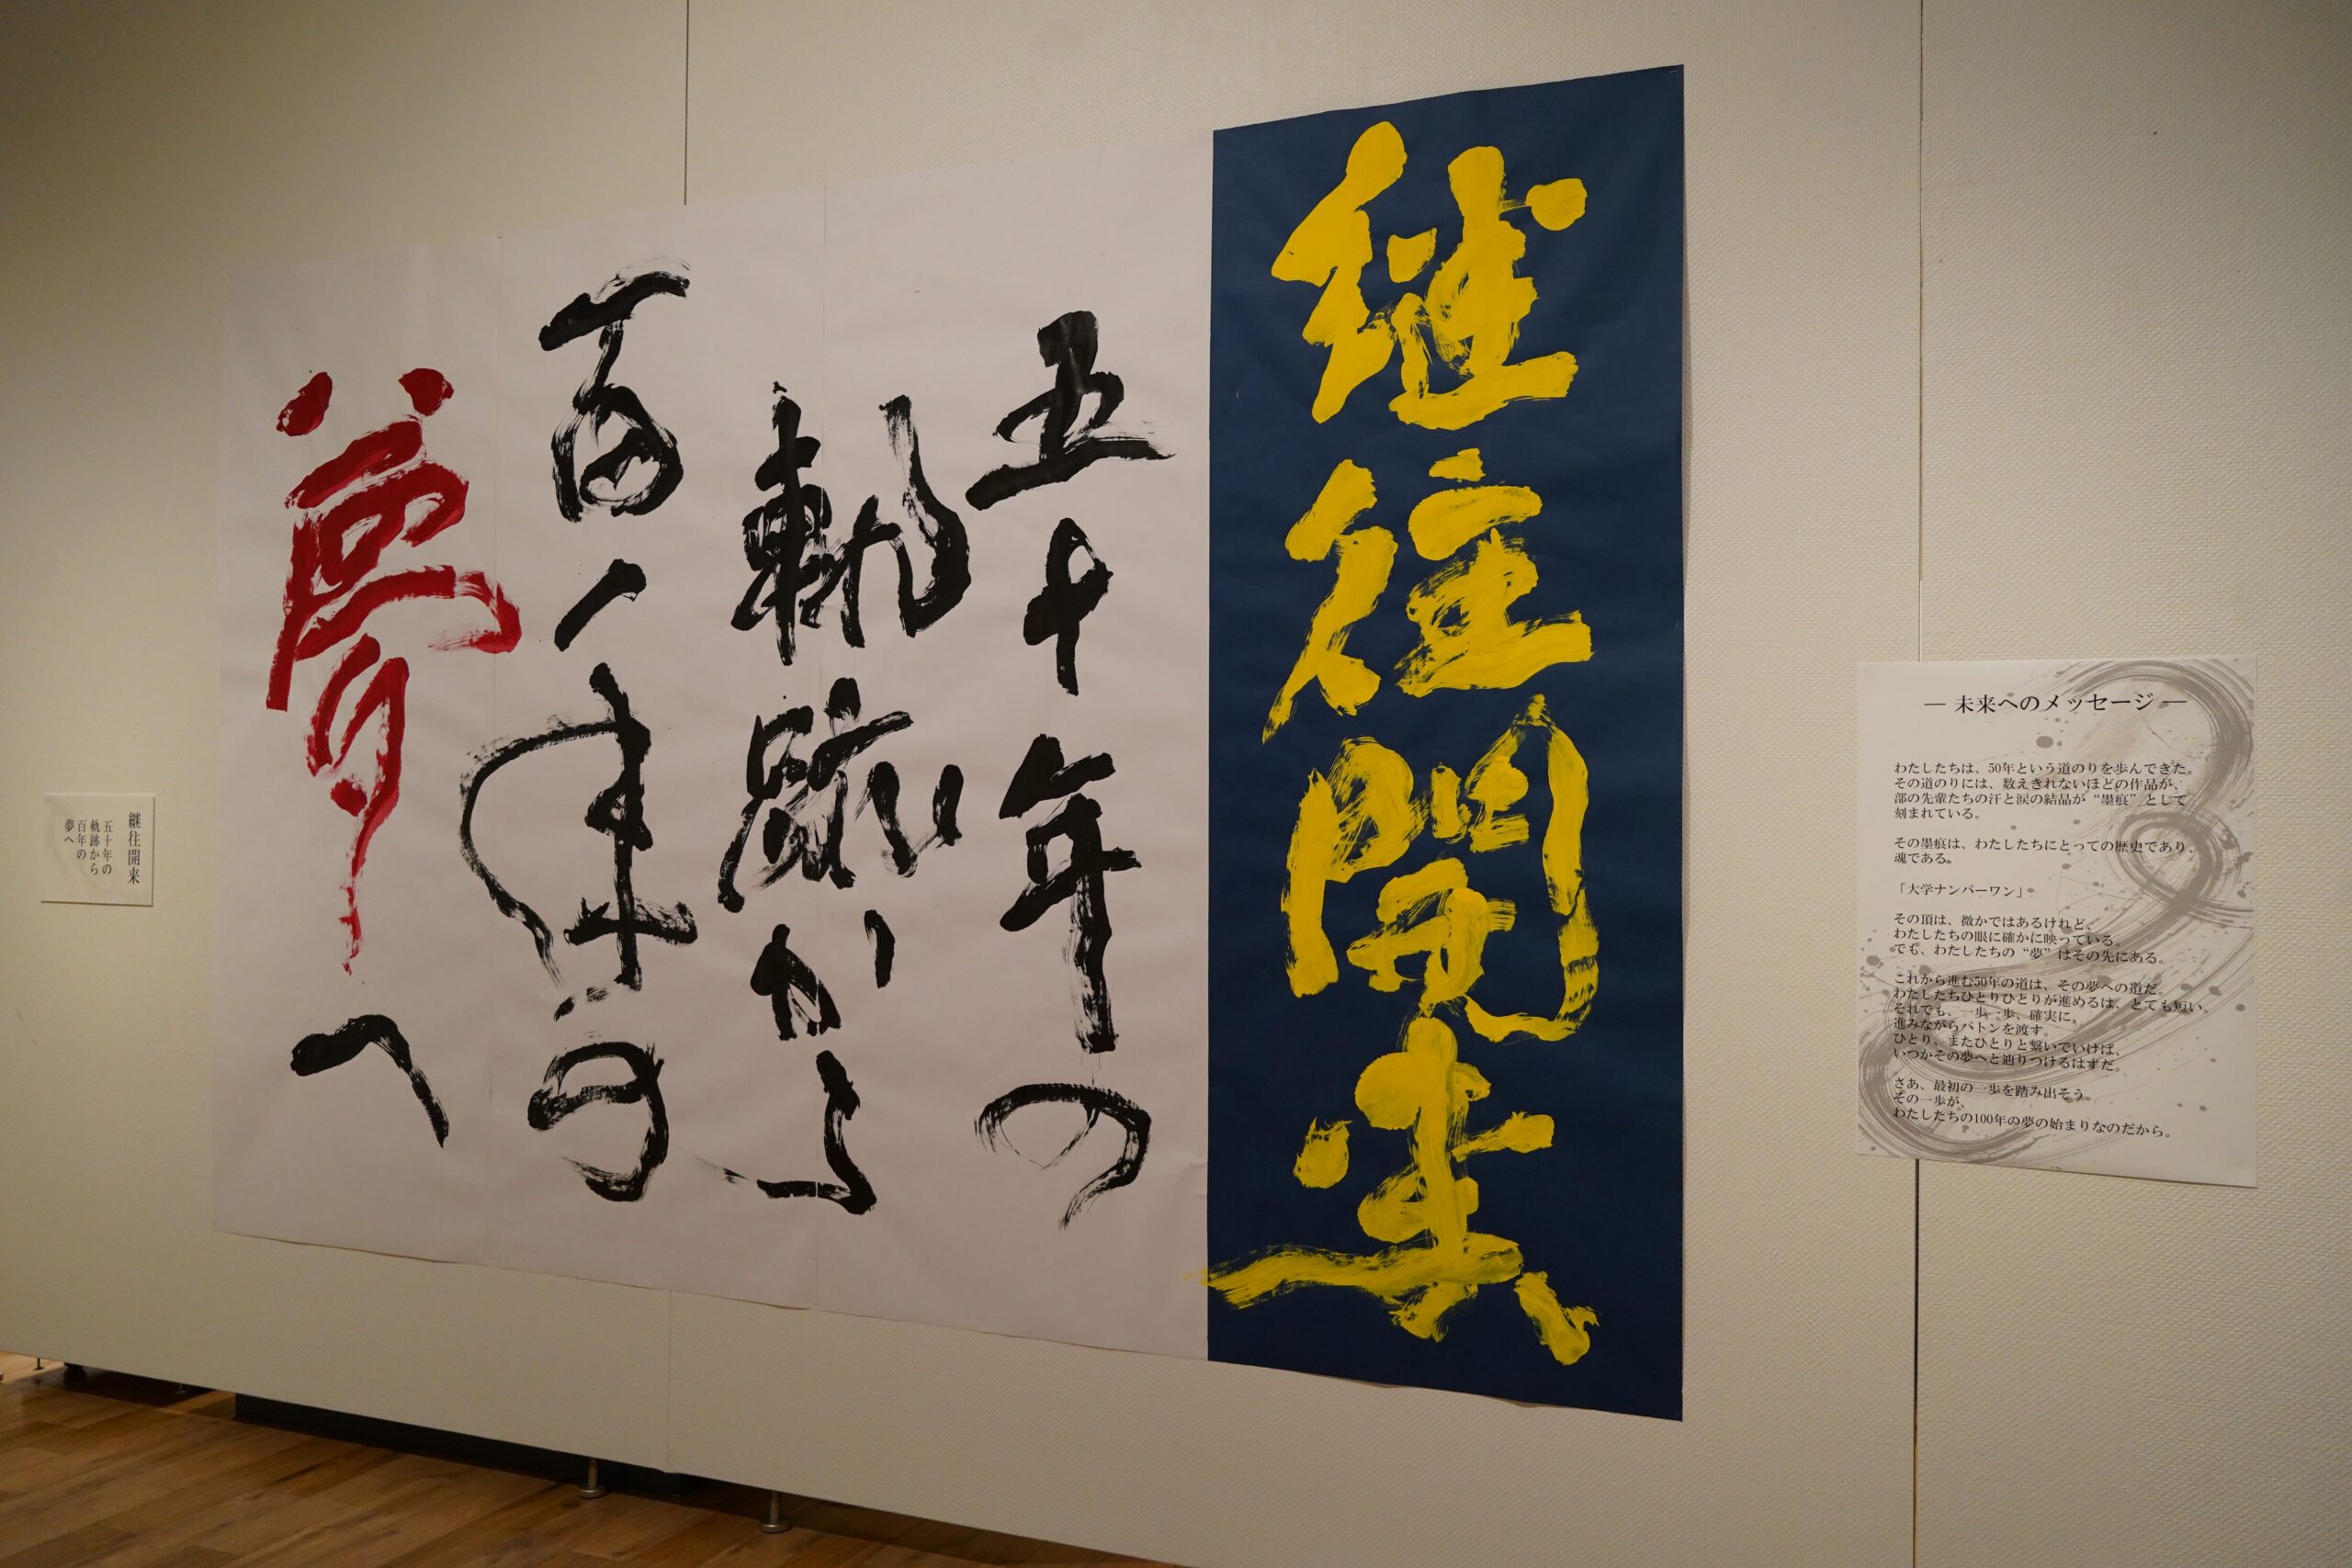 継往開来
五十年の
軌跡から
百年の
夢へ
― 未来へのメッセージ ―
わたしたちは、50年という道のりを歩んできた。
その道のりには、数えきれないほどの作品が、
部の先輩たちの汗と涙の結晶が“墨痕”として
刻まれている。
その墨痕は、わたしたちにとっての歴史であり、
魂である。
「大学ナンバーワン」
その頂は、微かではあるけれど、
わたしたちの眼に確かに映っている。
でも、わたしたちの“夢”はその先にある。
これから進む50年の道は、その夢への道だ。
わたしたちひとりひとりが進めるは、とても短い。
それでも、一歩一歩、確実に。
進みながらバトンを渡す。
ひとり、またひとりと繋いでいけば、
いつかその夢へと辿りつけるはずだ。
さあ、最初の一歩を踏み出そう。
その一歩が、
わたしたちの100年の夢の始まりなのだから。
継往開来
五十年の
軌跡から
百年の
夢へ